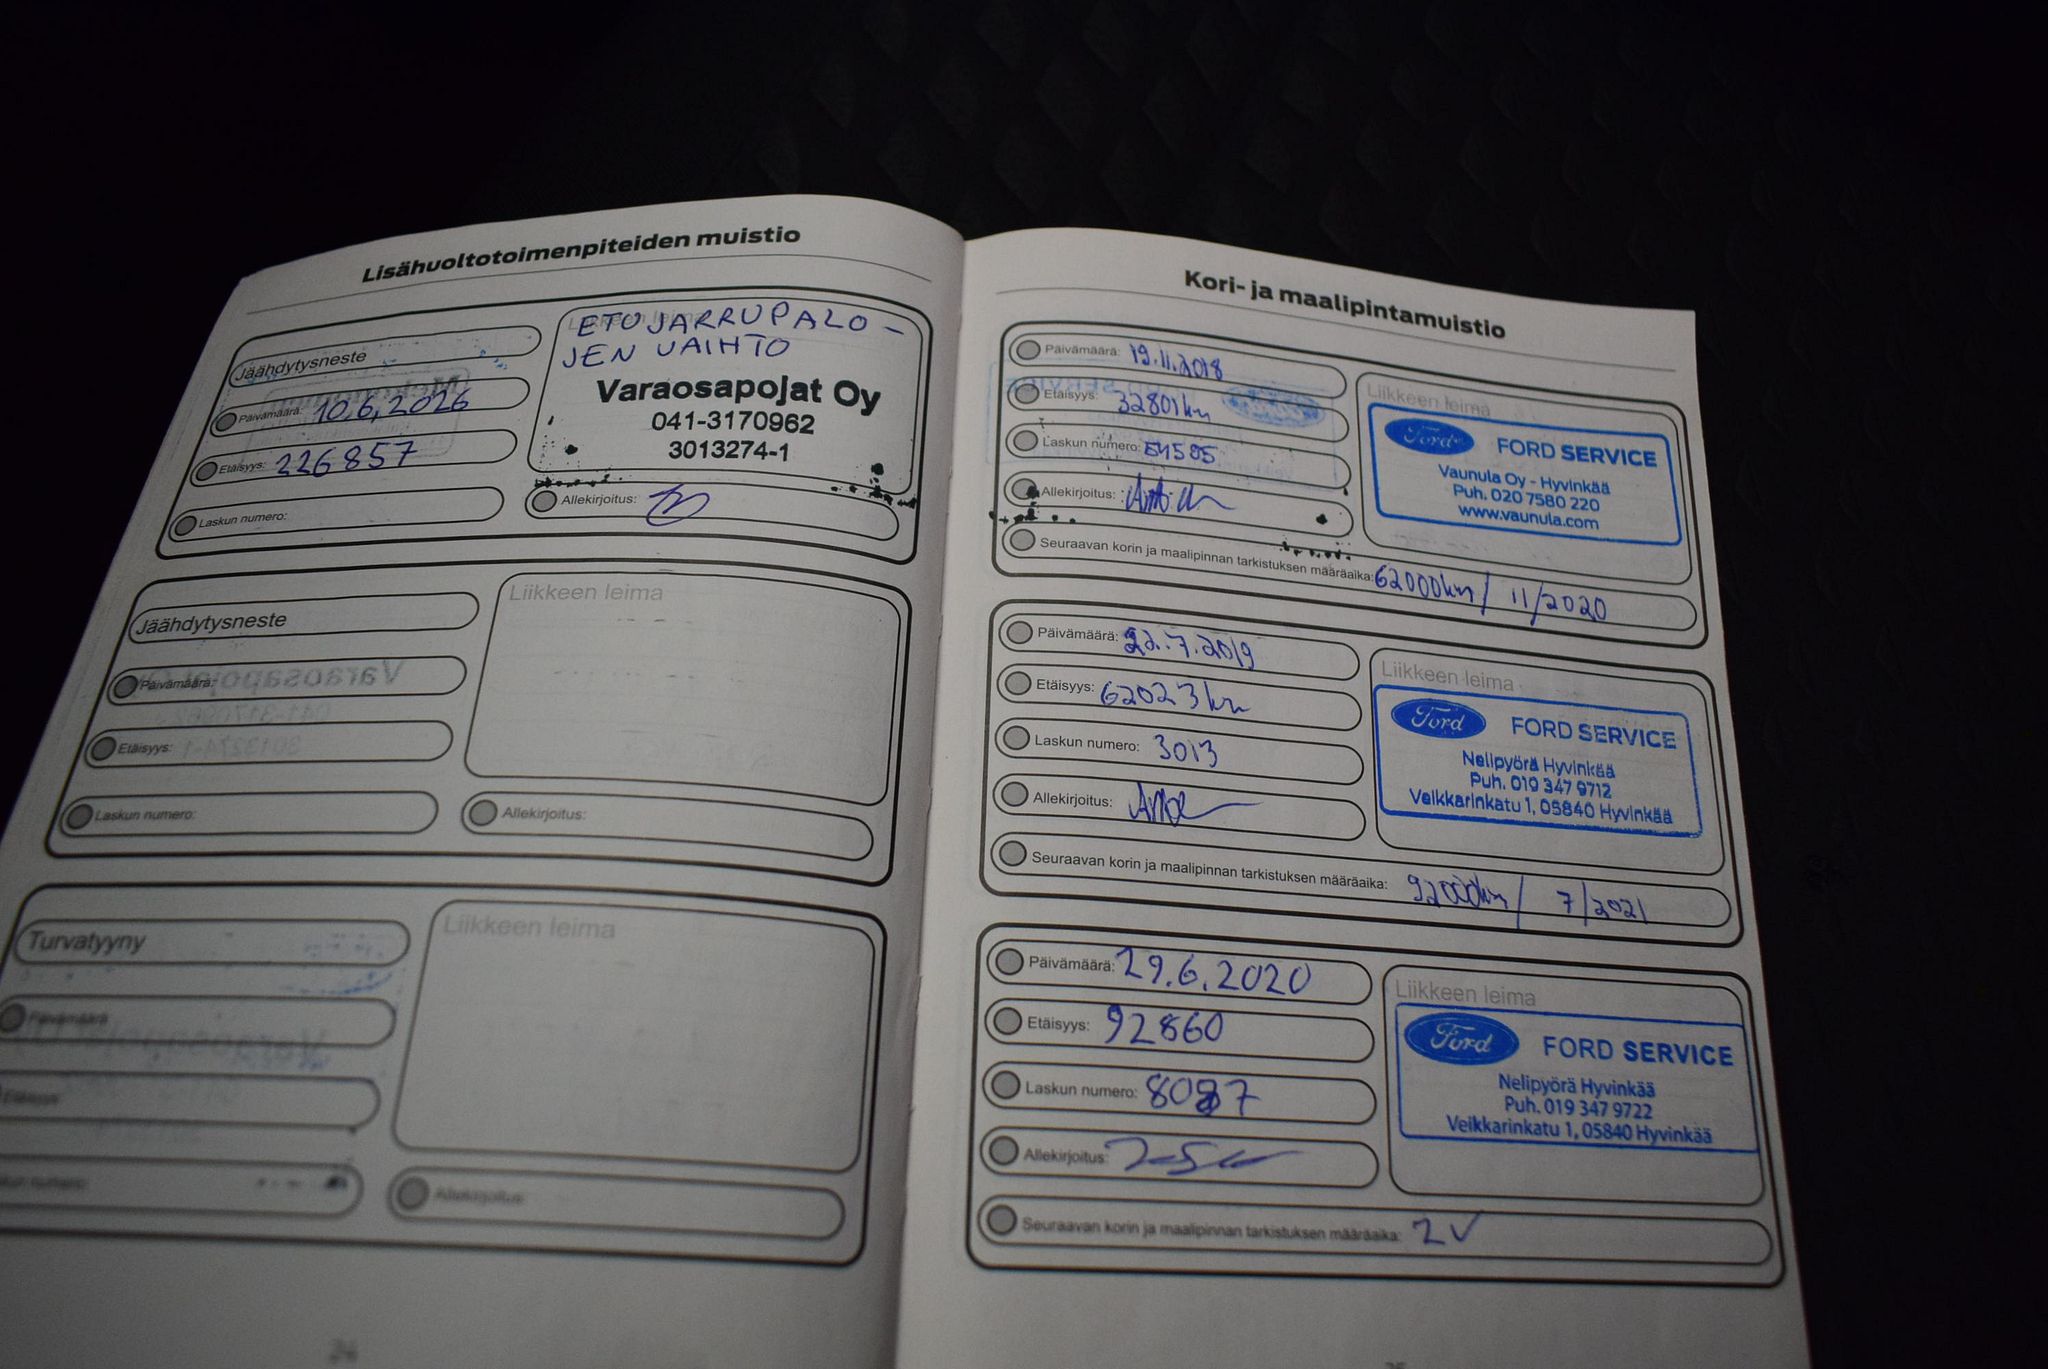 Lisähuoltotoimenpiteiden muistio
Jäähdytysneste
Päivämäärä: 10.6.2026
Etäisyys: 226857
Laskun numero:
Liikkeen leima
ETUJARRUPALO-
JEN VAIHTO
Varaosapojat Oy
041-3170962
3013274-1
Allekirjoitus:
Jäähdytysneste
Päivämäärä:
Etäisyys:
Laskun numero:
Liikkeen leima
Allekirjoitus:
Turvatyyny
Päivämäärä
Etäisyys:
Laskun numero:
Liikkeen leima
Allekirjoitus:
24
Kori- ja maalipintamuistio
Päivämäärä: 19.11.2018
Etäisyys: 32801km
Laskun numero:
Allekirjoitus:
Liikkeen leima
Ford FORD SERVICE
Vaunula Oy - Hyvinkää
Puh. 020 7580 220
www.vaunula.com
Seuraavan korin ja maalipinnan tarkistuksen määräaika: 62000km / 11/2020
Päivämäärä: 22.7.2019
Etäisyys: 62023km
Laskun numero: 3013
Allekirjoitus:
Liikkeen leima
Ford FORD SERVICE
Nelipyörä Hyvinkää
Puh. 019 347 9712
Veikkarinkatu 1, 05840 Hyvinkää
Seuraavan korin ja maalipinnan tarkistuksen määräaika: 92000km / 7/2021
Päivämäärä: 29.6.2020
Etäisyys: 92860
Laskun numero:
Allekirjoitus:
Liikkeen leima
Ford FORD SERVICE
Nelipyörä Hyvinkää
Puh. 019 347 9722
Veikkarinkatu 1, 05840 Hyvinkää
Seuraavan korin ja maalipinnan tarkistuksen määräaika: 2v